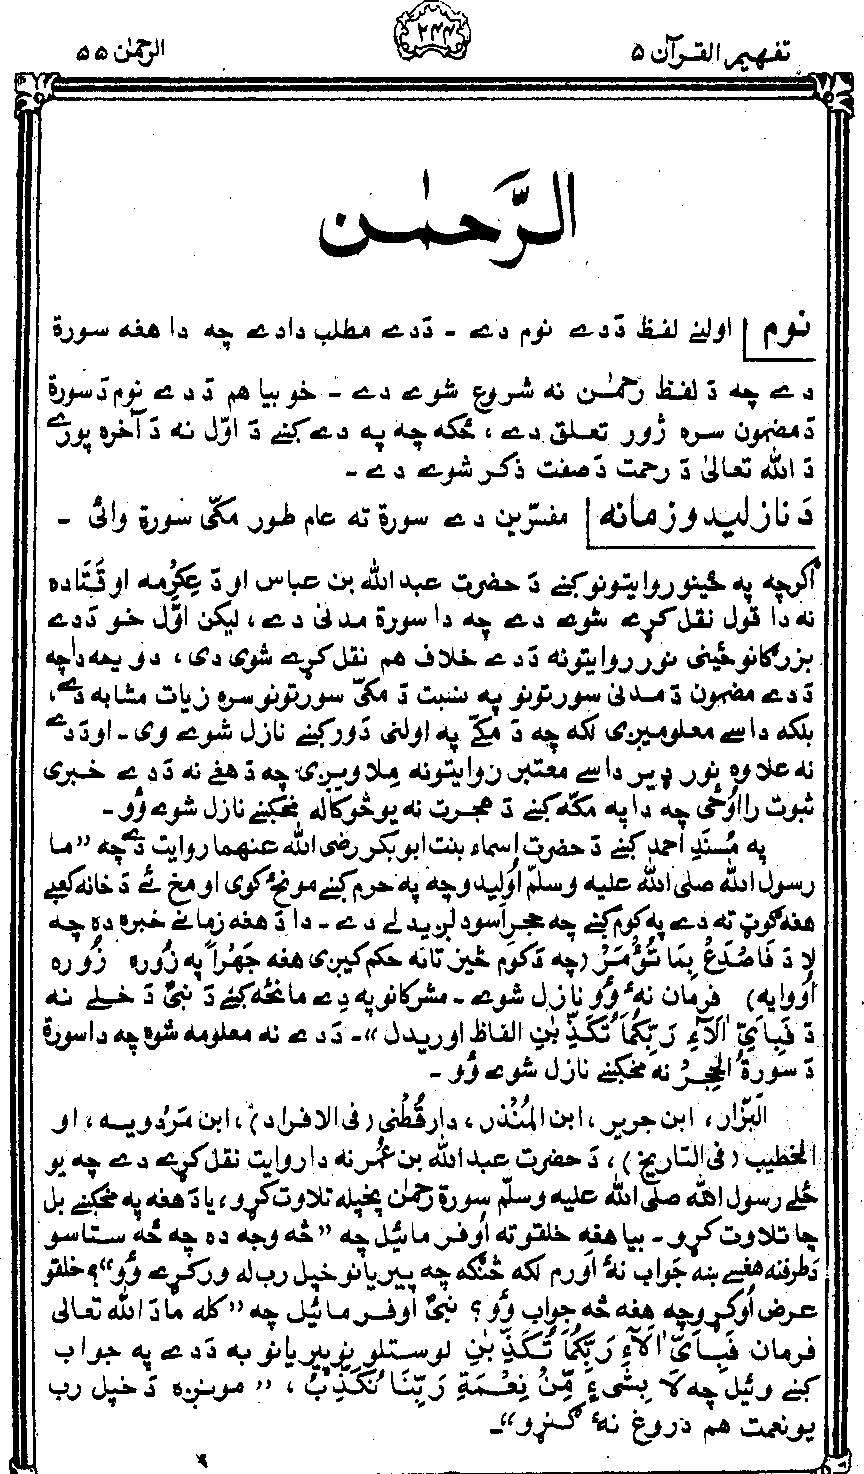 تفهیم القرآن ۵
۲۴۴
الرحمٰن ۵۵
الرَّحمٰن
نوم
اولنے لفظ دَدے نوم دے ۔ دَدے مطلب دادے چه دا هغه سورة
دے چه دَ لفظ رحمٰن نه شروع شوے دے ۔ خو بیا هم دَدے نوم دَسورة
دَمضمون سره ژور تعلق دے ، ځکه چه په دے کښے دَ اوّل نه دَ آخره پورے
دَ الله تعالیٰ دَ رحمت دَصفت ذکر شوے دے ۔
دَ نازلیدو زمانه
مفسّرین دے سورة ته عام طور مکّی سورة وائی ۔
اگرچه په ځینو روایتونو کښے دَ حضرت عبد الله بن عباس او دَ عِکرُمه او قَتَاده
نه دا قول نقل کړے شوے دے چه دا سورة مدنی دے ، لیکن اوّل خو دَدے
بزرګانو ځینی نور روایتونه دَدے خلاف هم نقل کړے شوی دی ، دویمه داچه
دَدے مضمون دَمدنی سورتونو په نسبت دَ مکّی سورتونو سره زیات مشابه دے ،
بلکه داسے معلومیږی لکه چه دَ مکّے په اولنی دَور کښے نازل شوے وی ۔ او دَدے
نه علاوه نور ډیر داسے معتبر روایتونه مِلاویږی چه دَ هغے نه دَدے خبری
ثبوت رااُوځی چه دا په مکّه کښے دَ هجرت نه یوڅو کاله مخکښے نازل شوے وُو ۔
په مُسنَدِ احمد کښے دَ حضرت اسماء بنت ابوبکر رضی الله عنهما روایت دے چه ”ما
رسول الله صلی الله علیه وسلّم اُولیدو چه په حرم کښے مونځ کوی او مخ ئے دَ خانه کعبے
هغه ګوټ ته دے په کوم کښے چه حجرِ اَسود لږیدلے دے ۔ دا دَ هغه زمانے خبره ده چه
لا دَ فَاصْدَعْ بِمَا تُؤْمَرُ (چه دَکوم څیز تاته حکم کیږی هغه جَهْراً په زُوره زُوره
اُووایه) فرمان نهٔ وُو نازل شوے ۔ مشرکانو په دے مانځه کښے دَ نبیٌ دَ خلے نه
دَ فَبِاَيِّ اٰلَآءِ رَبِّكُمَا تُكَذِّبٰنِ الفاظ اوریدل“ ۔ دَدے نه معلومه شوه چه دا سورة
دَ سورةُ الحِجرُ نه مخکښے نازل شوے وُو ۔
البَزّار ، ابن جریر ، ابن المُنْذر ، دارقُطْنی (فی الافراد) ، ابن مَرْدویه ، او
الخطیب (فی التاریخ) ، دَ حضرت عبد الله بن عُمر نه دا روایت نقل کړے دے چه یو
ځلے رسول الله صلّی الله علیه وسلّم سورة رحمٰن پخپله تلاوت کړو ، یا دَ هغه په مخکښے بل
چا تلاوت کړو ۔ بیا هغه خلقو ته اُوفرمائیل چه ”څه وجه ده چه څه ستاسو
دَطرفنه هغسے ښه جواب نهٔ اَورم لکه څنګه چه پیریانو خپل رب له ورکړے وُو“؟ خلقو
عرض اُوکړو چه هغه څه جواب وُو ؟ نبیٌ اُوفرمائیل چه ”کله ما دَ الله تعالی
فرمان فَبِاَيِّ اٰلَآءِ رَبِّكُمَا تُكَذِّبٰنِ لوستلو نو پیریانو به دَدے په جواب
کښے وئیل چه لَا بِشَیْءٍ مِّنْ نِعْمَةِ رَبِّنَا نُكَذِّبُ ، ”مونږه دَ خپل رب
یو نعمت هم دروغ نهٔ ګنړو“۔